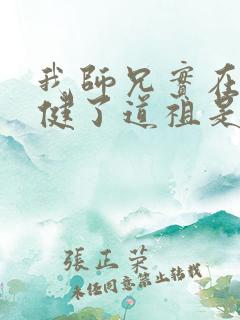 我師兄實在
健了道祖是
張正榮
未任同意禁止转载